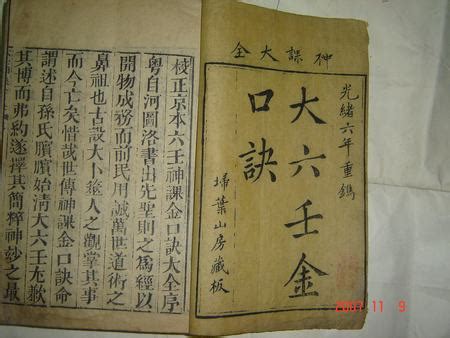 神課大全
光緒六年重鐫
大六壬金
口訣
埽葉山房藏板
校正京本六壬神課金口訣大全序
粵自河圖洛書出先聖則之為經以
開物成務而前民用誠萬世道術之
鼻祖也古設大卜簭人之觀掌其事
而今亡矣惜哉世傳神課金口訣命
謂述自孫氏臏臏始清大六壬尤歉
其博而弗約遂擇其簡粹神妙之最
2007.11 9